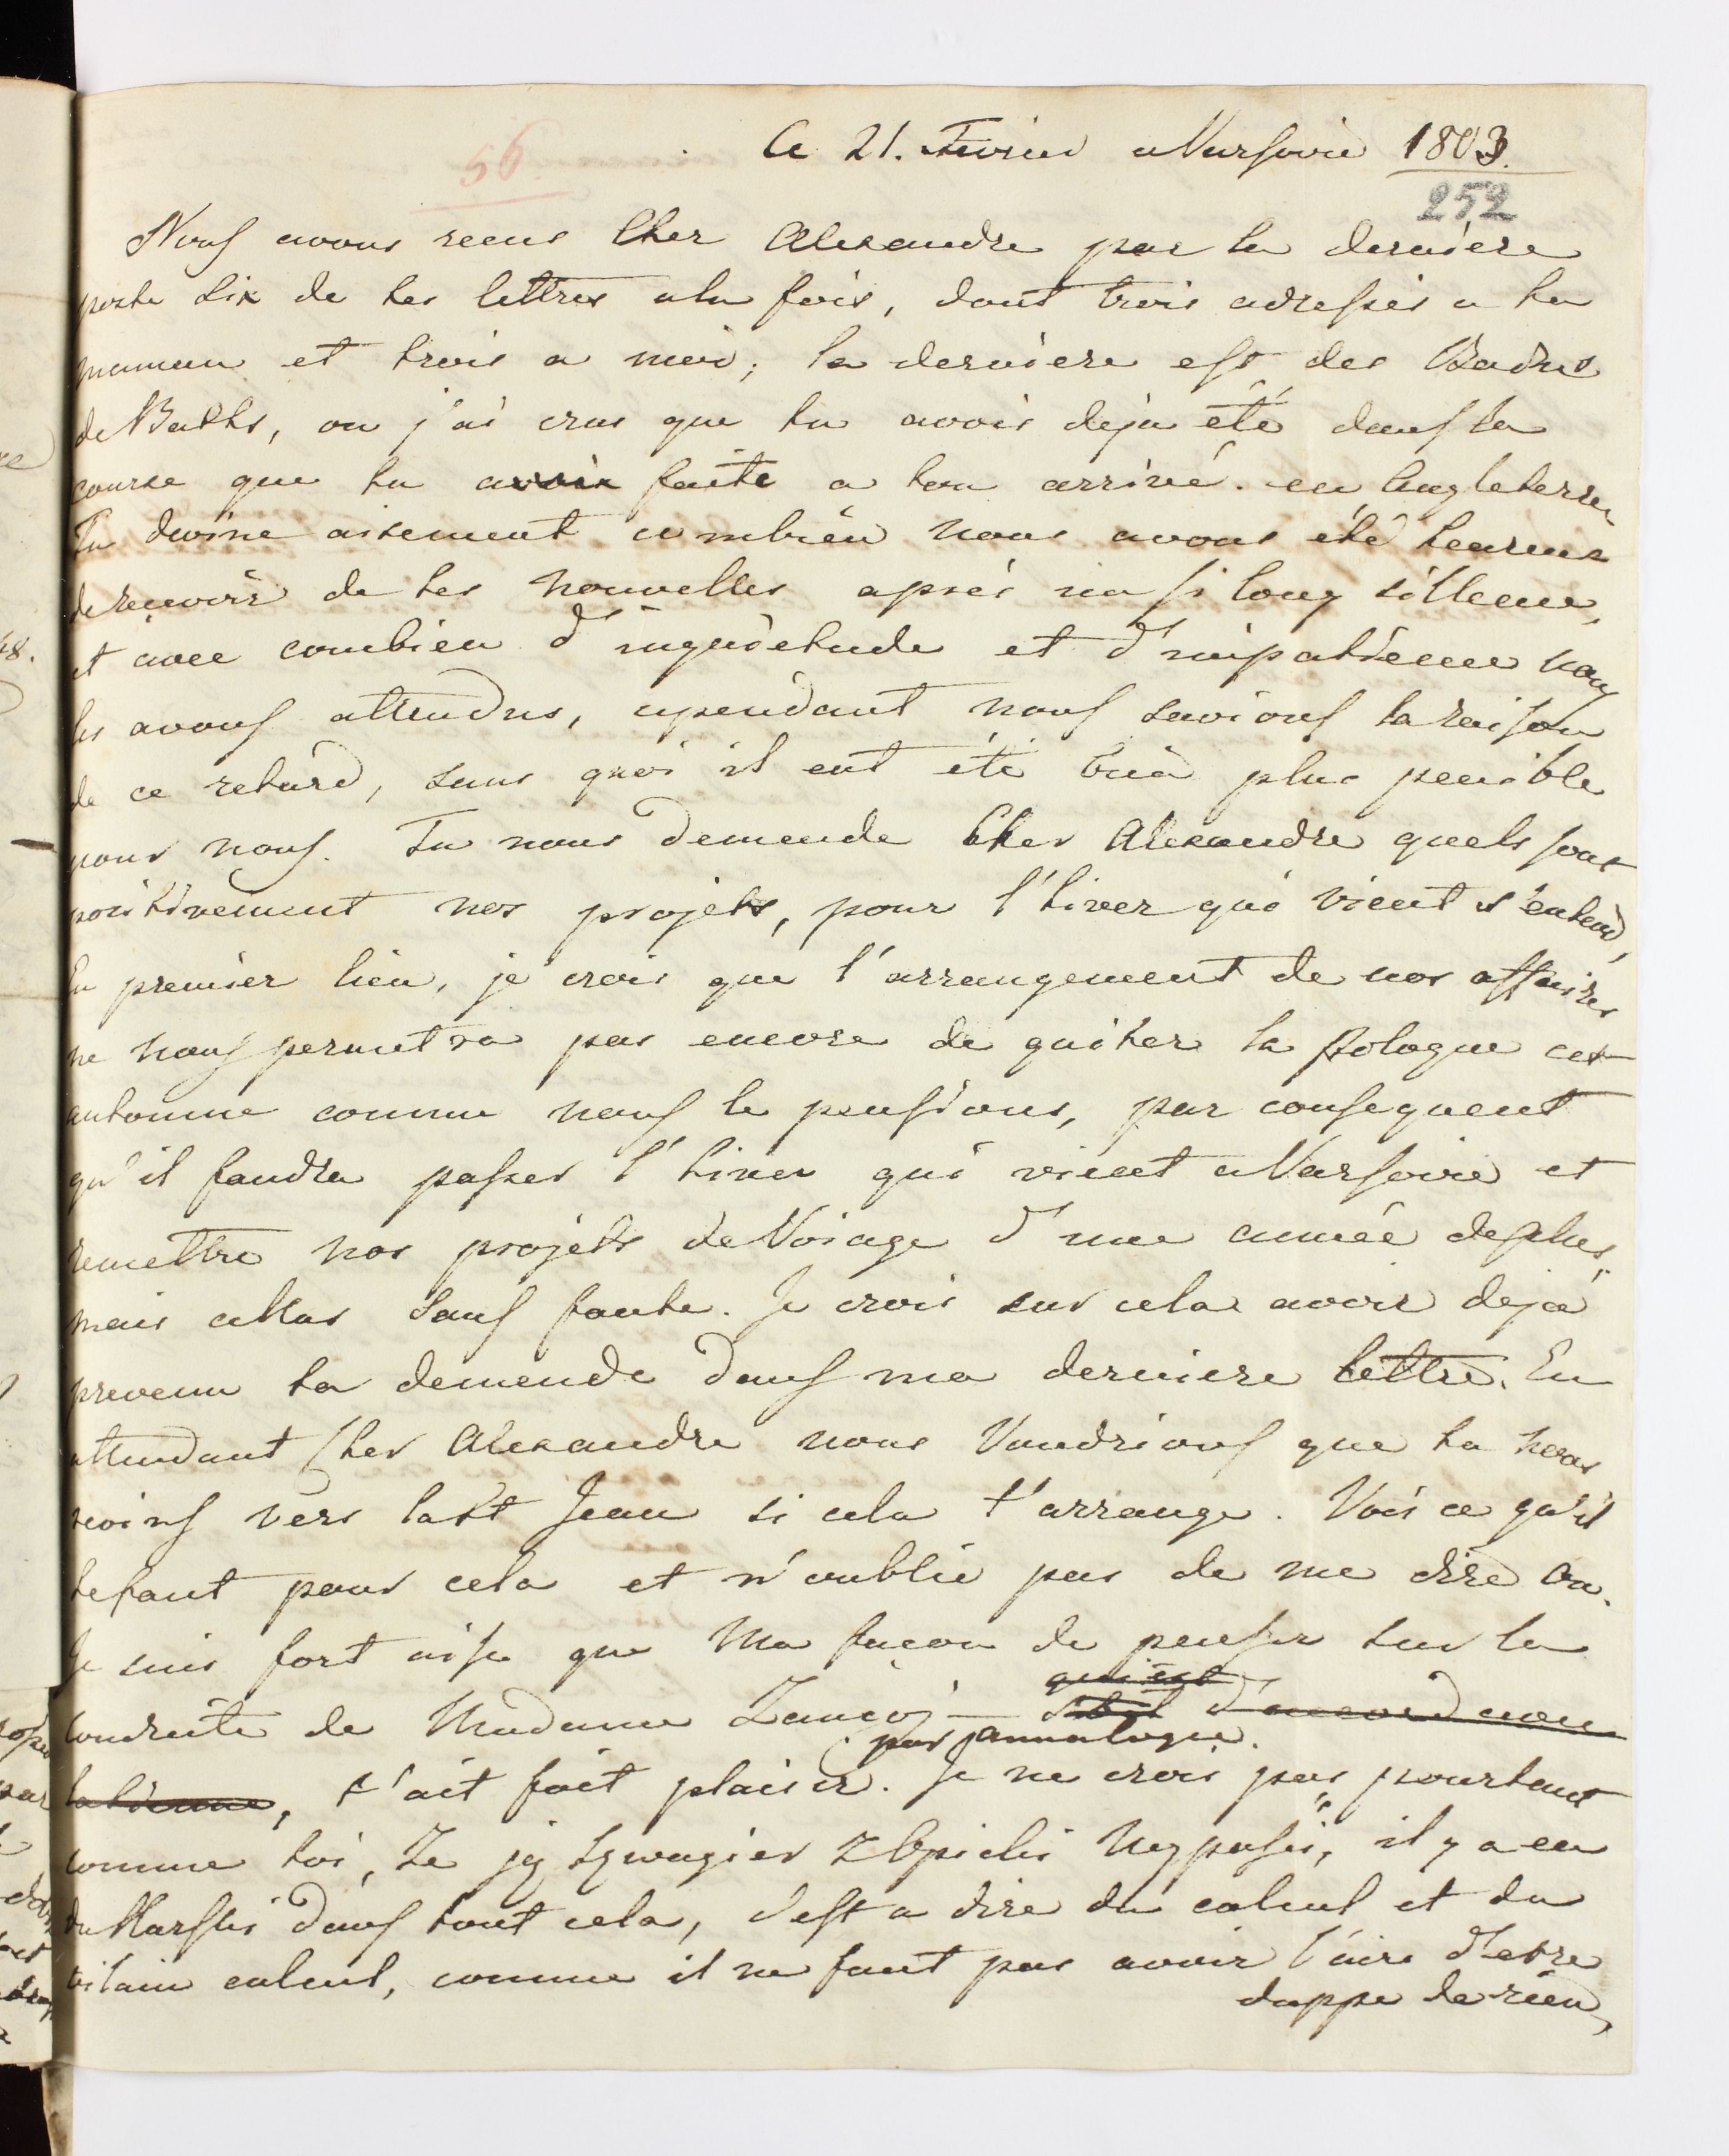 56.
Ce 21. Fevrier a Varsovie 1803.
252
Nous avons recus Cher Alexandre par la derniere
poste six de tes lettres a la fois, dont trois adressés a ta
maman et trois a moi; la derniere est des
de Baths, ou j'ai crus que tu avois deja été dans la
course que tu avois faite a ton arrivé en Angleterre
Tu devine aisement combien nous avons été heureux
de recevoir de tes nouvelles aprés un si long sillence,
et avec combien d'inquietude et d'impatience nous
les avons attendus, cependant nous savions la raison
de ce retard, sans quoi il eut été bien plus penible
pour nous. Tu nous demende Cher Alexandre quels sont
positivement nos projets, pour l'hiver qui vient s'entend,
En premier lieu, je crois que l'arrangement de nos affaires
ne nous permetra pas encore de quiter la Pologne cet
automne comme nous le pensions, par consequent
qu'il faudra passer l'hiver qui vient a Varsovie et
remettre nos projets de Voiage d'une année de plus,
mais allors sans faute. Je crois sur cela avoir deja
prevenu ta demende dans ma derniere lettre. En
attendant Cher Alexandre nous Voudrions que tu nous
revins vers la St Jean si cela t'arrange. Vois ce qu'il
te faut pour cela et n'oublie pas de me dire ou.
Je suis fort aise que Ma facon de penser sur la
conduite de Madame Zamoj— qui est d'accord avec
par annalogie.
la tienne, t'ait fait plaisir. Je ne crois pas pourtant
comme toi, Ze jej Szwagier, il y a eu
dans tout cela, c'est a dire du calcul et du
vilain calcul, comme il ne faut pas avoir l'aire d'etre
duppe de rien,